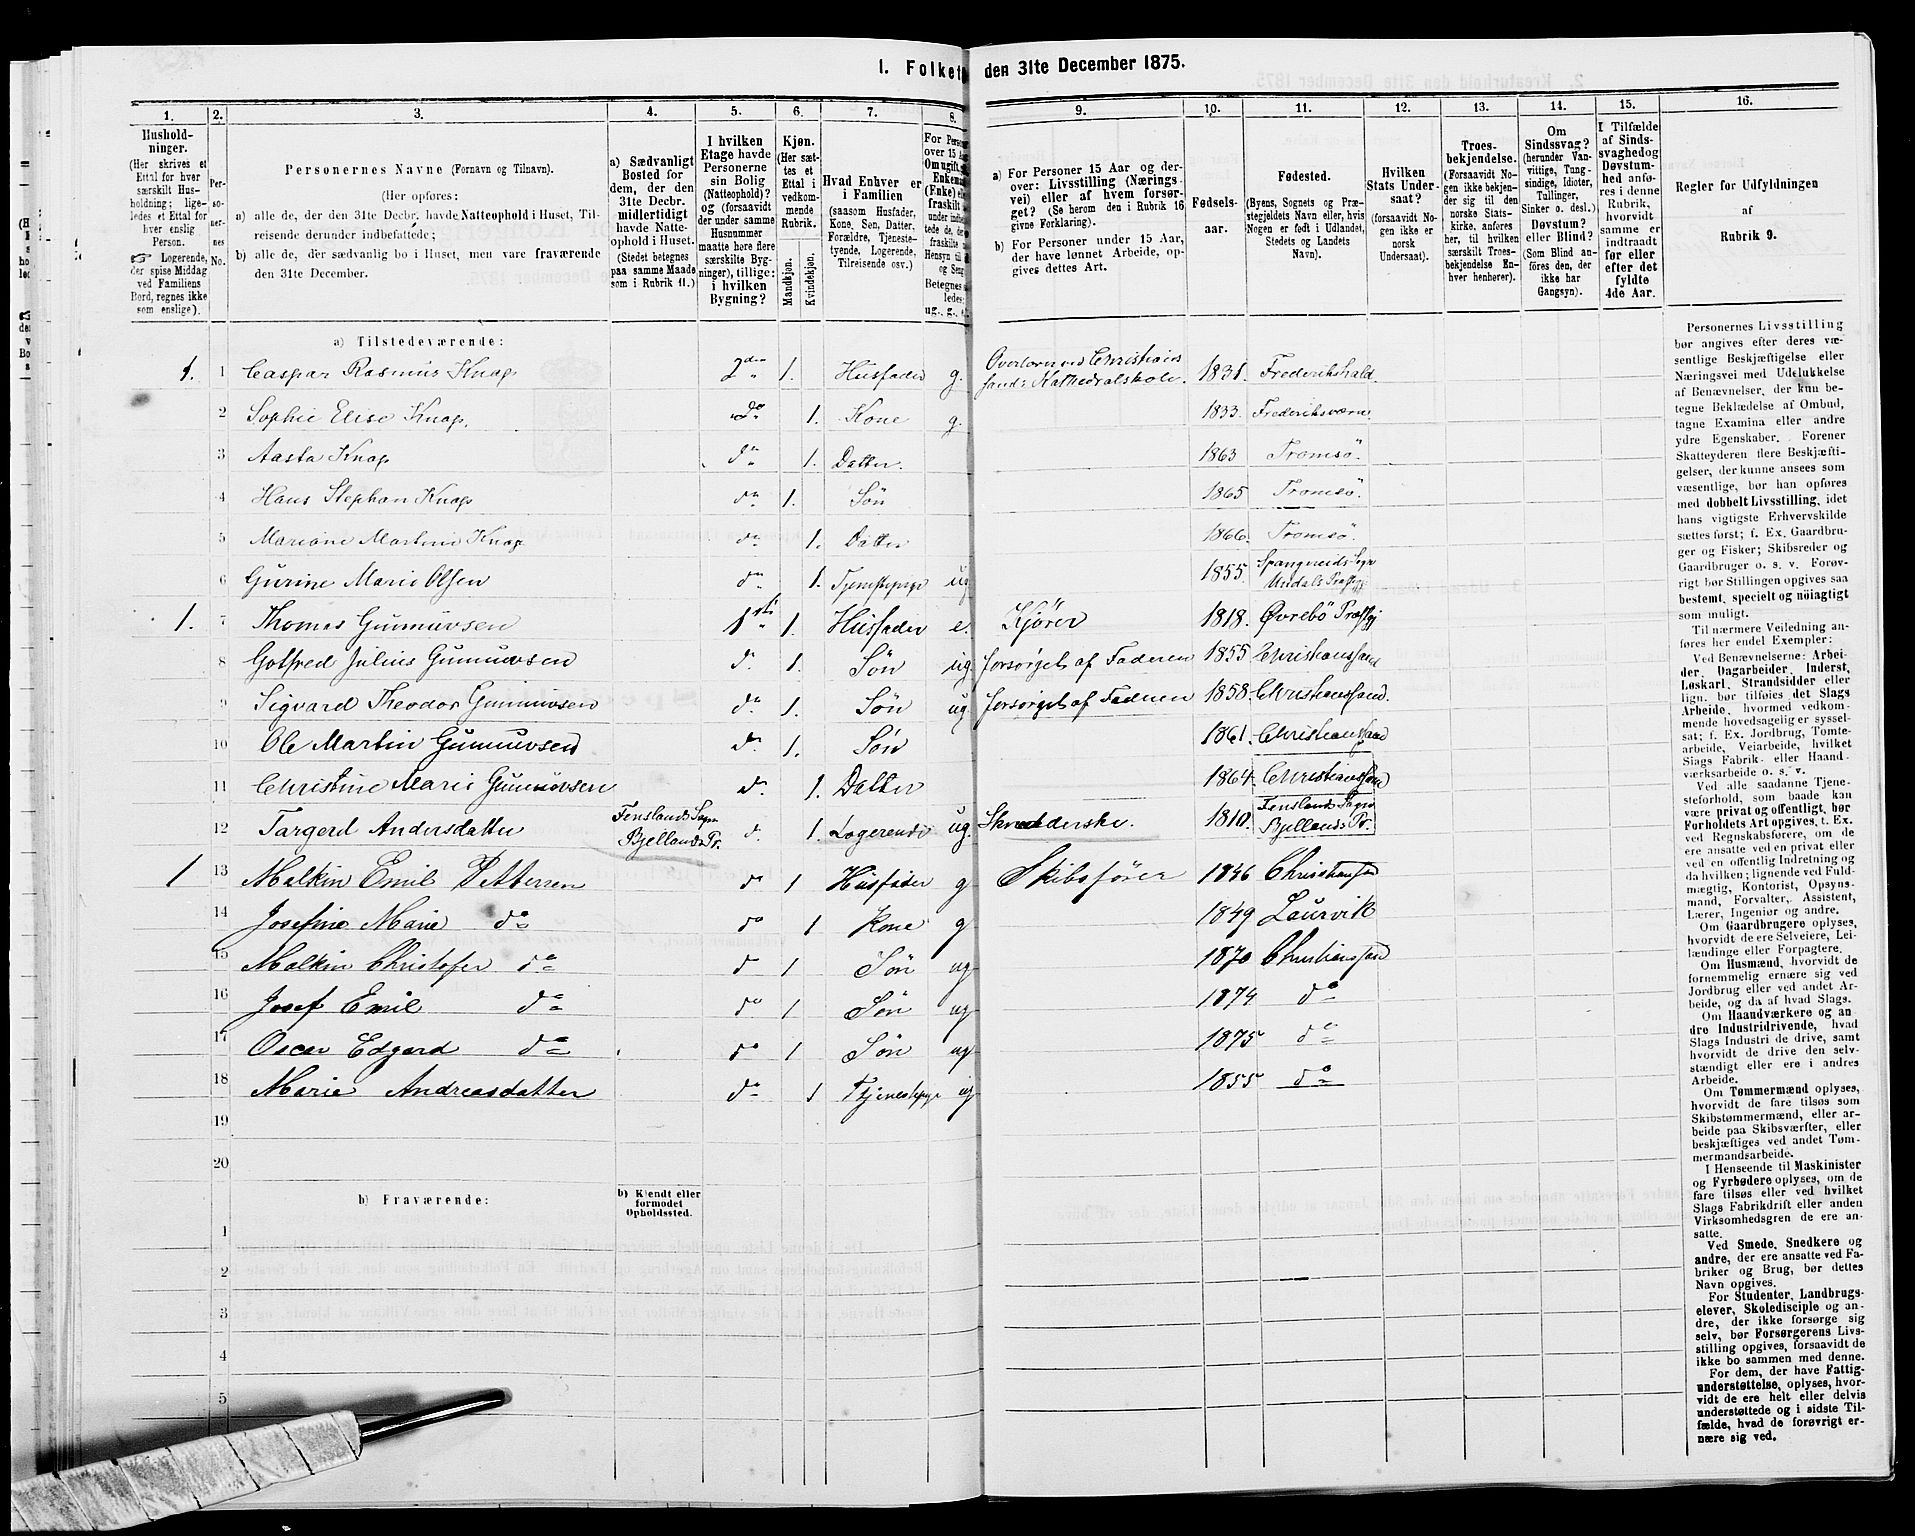 1. Folket
den 31te December 1875.
1. 2. 3. 4. 5. 6. 7. 8. 9. 10. 11. 12. 13. 14. 15. 16.
Hushold-
ninger.
(Her skrives et
Ettal for hver
særskilt Hus-
holdning; lige-
ledes et Ettal for
hver enslig
Person.
Logerende,
der spise Middag
ved Familiens
Bord, regnes ikke
som enslige).
Per-
so-
ner-
nes
No.
Personernes Navne (Fornavn og Tilnavn).
(Her opføres:
a) alle de, der den 31te Decbr. havde Natteophold i Huset, Til-
reisende derunder indbefattede;
b) alle de, der sædvanlig bo i Huset, men vare fraværende
den 31te December.
a) Sædvanligt
Bosted for
dem, der den
31te Decbr.
midlertidigt
havde Natte-
ophold i Huset.
(Stedet betegnes
paa samme Maade
som i Rubrik 11.)
I hvilken
Etage havde
Personerne
sin Bolig
(Natteophold)?
og (forsaavidt
der under samme
Husnummer
maatte høre flere
særskilte Byg-
ninger), tillige:
i hvilken
Bygning?
Kjøn.
(Her sæt-
tes et
Ettal i
vedkom-
mende
Rubrik.
Mandkjøn.
Kvindekjøn.
Hvad Enhver er
i Familien
(saasom Husfader,
Kone, Søn, Datter,
Forældre, Tjeneste-
tyende, Logerende,
Tilreisende osv.)
a) For Personer 15 Aar og der-
over: Livsstilling (Nærings-
vei) eller af hvem forsør-
get? (Se herom den i Rubrik 16
givne Forklaring).
b) For Personer under 15 Aar,
der have lønnet Arbeide, op-
gives dettes Art.
Fødsels-
aar.
Fødested.
(Byens, Sognets og Præ-
stegjeldets Navn eller, hvis
Nogen er født i Udlandet,
Stedets og Landets
Navn).
Hvilken
Stats Under-
saat?
(forsaavidt No-
gen ikke er
norsk
Undersaat).
Troes-
bekjendelse.
(Forsaavidt No-
gen ikke bekjen-
der sig til den
norske Stats-
kirke, anføres
her, til hvilken
særskilt Troes-
bekjendelse En-
hver henhører).
Om
Sindssvag?
(herunder Van-
vittige, Tung-
sindige, Idioter,
Tullinger,
Sinker o. desl.)
Døvstum?
eller Blind?
(Som Blind an-
føres den, der
ikke har
Gangsyn).
I Tilfælde
af Sinds-
svaghed og
Døvstum-
hed anfø-
res i denne
Rubrik,
hvorvidt
samme er
indtraadt
før eller
efter det
fyldte
4de Aar.
Regler for Udfyldningen
af
Rubrik 9.
a) Tilstedeværende:
1. 1 Caspar Rasmus Knap 2den 1. Husfader g. Overlærer ved Christians- sands Kathedralskole. 1831. Frederikshald.
2 Sophie Elise Knap. do 1. Kone g. 1833. Frederiksværn
3 Aasta Knap do 1. Datter. 1863 Tromsö.
4 Hans Stephan Knap do 1. Sön 1865 Tromsö.
5 Mariane Martine Knap do 1. Datter 1866. Tromsö.
6 Gurine Marie Olsen do 1. ug 1855. Spangreids Sogn Undals
1. 7 Thomas Gunnuvsen 1ste 1. Husfader e. Kjörer 1818. Øvrebö Præstgj
8 Gotfred Julius Gunnuvsen d. 1. Sön ug forsörget af Faderen 1855 Christianssand
9 Sigvard Theodor Gunnuvsen d. 1. Sön ug forsörget af Faderen 1858. Christianssand.
10 Ole Martin Gunnuvsen d. 1. Sön 1861. Christianssand
11 Christine Marie Gunnuvsen d. 1. Datter 1864. Christianssand
12 Targerd Andersdatter Fenslands Sogn Bjellands Pr. d. 1. Logerende ug. Skrædderske. 1810. Fenslands Sogn Bjellands Pr.
1 13 Malkin Emil Pettersen do 1 Husfader g Skibsförer 1846 Christianssand
14 Josefine Marie do do 1 Kone g 1849 Laurvik
15 Malkin Christofer do do 1 Sön ug 1870 Christianssand
16 Josef Emil do do 1 Sön ug 1874 do
17 Oscar Edgard do do 1 Sön ug 1875 do
18 Marie Andreasdatter do 1 ug 1855 do
19
20
b) Fraværende:
b) Kjendt eller
formodet
Opholdssted.
1
2
3
4
5
Personernes Livsstilling
bør angives efter deres væ-
sentlige Beskjæftigelse eller
Næringsvei med Udelukkelse
af Benævnelser, der kun be-
tegne Beklædelse af Ombud,
tagne Examina eller andre
ydre Egenskaber. Forener
Skatteyderen flere Beskjæfti-
gelser, der kunne ansees som
væsentlige, bør han opføres
med dobbelt Livsstilling, idet
hans vigtigste Erhvervskilde
sættes først; f. Ex. Gaardbru-
ger og Fisker; Skibsreder og
Gaardbruger o. s. v. Forøv-
rigt bør Stillingen opgives saa
bestemt, specielt og nöiagtigt
som muligt.
Til nærmere Veiledning an-
føres her endel Exempler:
Ved Benævnelserne: Arbei-
der, Dagarbeider, Inderst,
Løskarl, Strandsidder eller
lign. bør tilføies det Slags
Arbeide, hvormed vedkom-
mende hovedsagelig er syssel-
sat; f. Ex. Jordbrug, Tomte-
arbeide, Veiarbeide, hvilket
Slags Fabrik- eller Haand-
værksarbeide o. s. v.
Ved alle saadanne Tjene-
steforhold, som baade kan
være privat og offentligt, bør
Forholdets Art opgives, t. Ex.
ved Regnskabsførere, om de
ere ansatte ved en privat eller
ved en offentlig Indretning og
da hvilken; lignende ved Fuld-
mægtig, Kontorist, Opsyns-
mand, Forvalter, Assistent,
Lærer, Ingeniør og andre.
Om Gaardbrugere oplyses,
hvorvidt de ere Selveiere, Lei-
lændinge eller Forpagtere.
Om Husmænd, hvorvidt de
fornemmelig ernære sig ved
Jordbrug eller ved andet Ar-
beide, og da af hvad Slags.
Om Haandværkere og an-
dre Industridrivende, hvad
Slags Industri de drive, samt
hvorvidt de drive den selv-
stændigt eller ere i andres
Arbeide.
Om Tømmermænd oplyses,
hvorvidt de fare tilsøs som
Skibstømmermænd, eller ar-
beide paa Skibsværfter, eller
beskjæftiges ved andet Tøm-
mermandsarbeide.
I Henseende til Maskinister
og Fyrbødere oplyses, om de
fare tilsøs eller ved hvilket
Slags Fabrikdrift eller anden
Virksomhedsgren de ere an-
satte.
Ved Smede, Snedkere og
andre, der ere ansatte ved Fa-
briker og Brug, bør dettes
Navn opgives.
For Studenter, Landbrugs-
elever, Skoledisciple og an-
dre, der ikke forsørge sig
selv, bør Forsørgerens Livs-
stilling opgives, forsaavidt de
ikke bo sammen med denne.
For dem, der have Fattig-
understøttelse, oplyses, hvor-
vidt de ere helt eller delvis
understøttede og i sidste Til-
fælde, hvad de forøvrigt er-
nære sig ved.